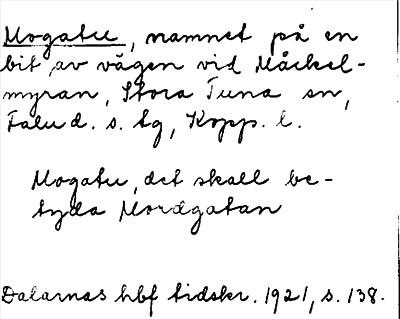 Mogatu, namnet på en
bit av vägen vid Måckel-
myran, Stora Tuna sn,
Falu d. s. tg, Kopp. l.
Mogatu, det skall be-
tyda Mordgatan
Dalarnas hbf tidskr. 1921, s. 138.